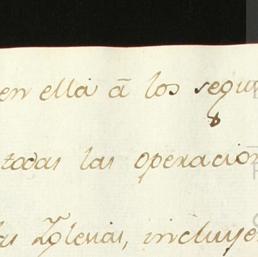 en ella â los segu
todas las operacio
las Yglesias, incluye